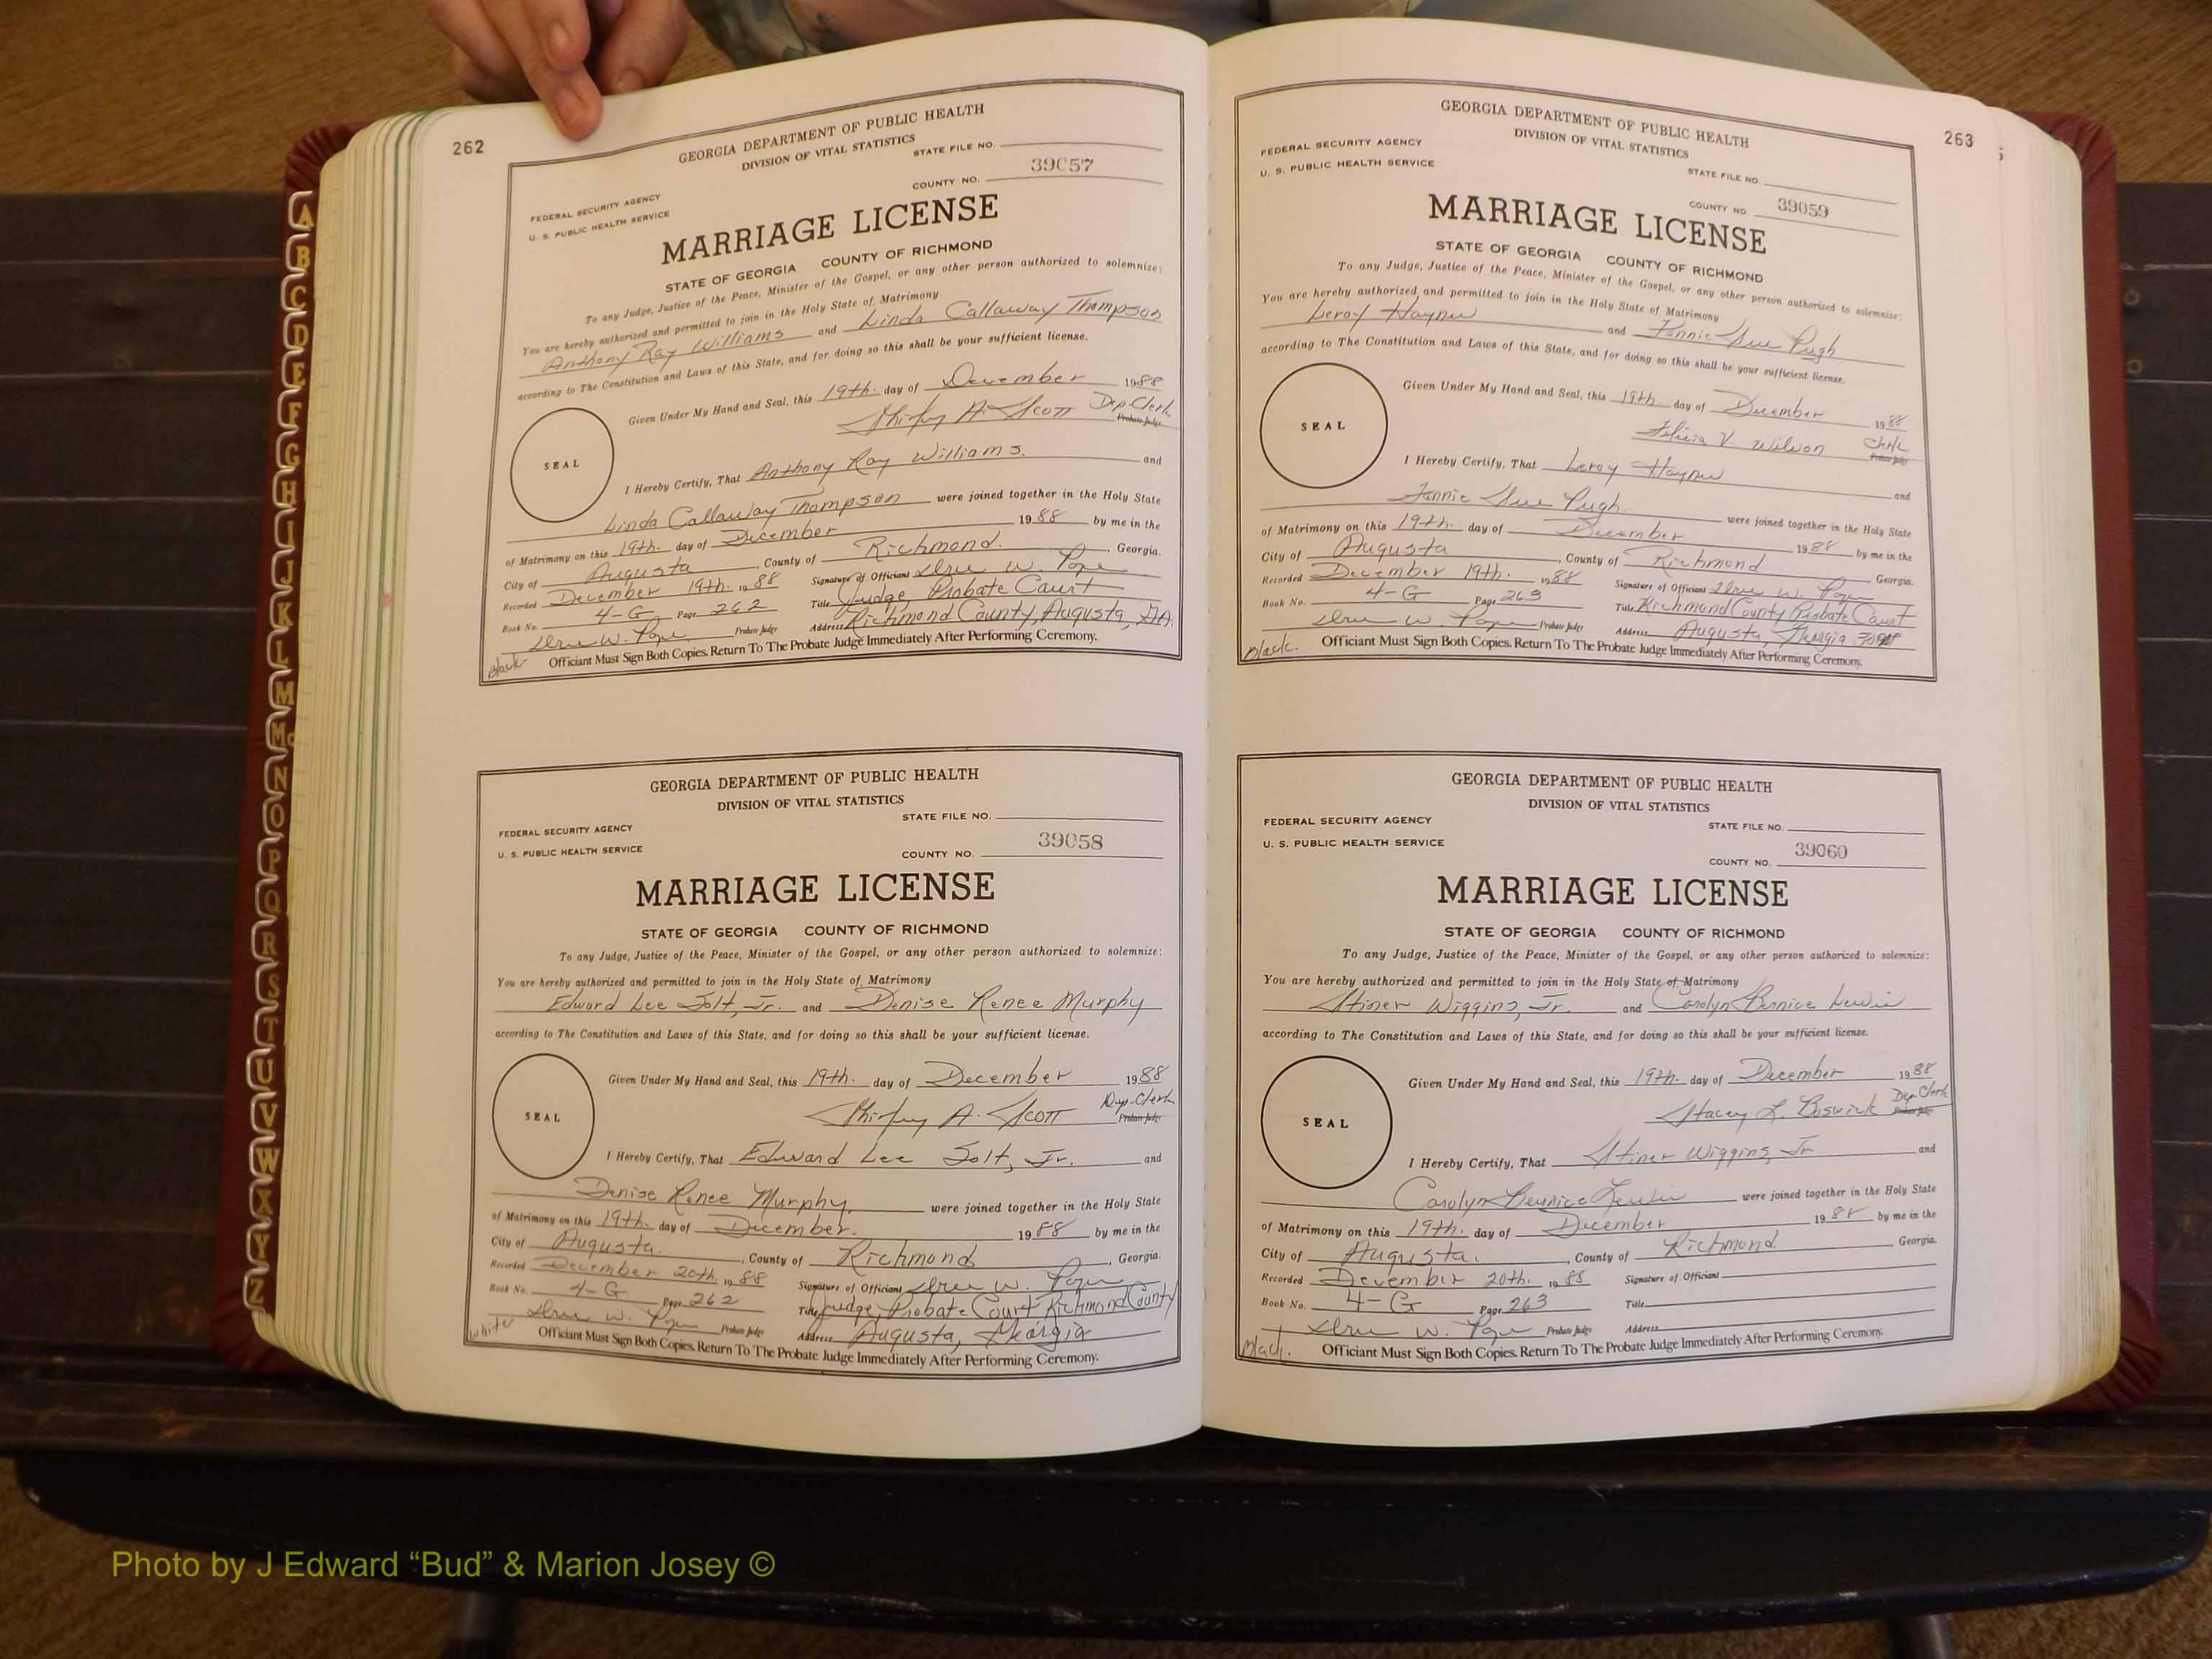 262
GEORGIA DEPARTMENT OF PUBLIC HEALTH
DIVISION OF VITAL STATISTICS
STATE FILE NO.
FEDERAL SECURITY AGENCY
U. S. PUBLIC HEALTH SERVICE
COUNTY NO. 39057
MARRIAGE LICENSE
STATE OF GEORGIA COUNTY OF RICHMOND
To any Judge, Justice of the Peace, Minister of the Gospel, or any other person authorized to solemnize:
You are hereby authorized and permitted to join in the Holy State of Matrimony
Anthony Ray Williams and Linda Callaway Thompson
according to The Constitution and Laws of this State, and for doing so this shall be your sufficient license.
Given Under My Hand and Seal, this 19th. day of December 1988
Shirley A. Scott Dep-Clerk
Probate Judge
SEAL
I Hereby Certify, That Anthony Ray Williams. and
Linda Callaway Thompson were joined together in the Holy State
of Matrimony on this 19th. day of December 1988 by me in the
City of Augusta, County of Richmond., Georgia.
Recorded December 19th. 1988 Signature of Officiant W.
Book No. 4-G Page 262 Title Judge, Probate Court
W. Probate Judge Address Richmond County, Augusta, GA.
Black Officiant Must Sign Both Copies. Return To The Probate Judge Immediately After Performing Ceremony.
GEORGIA DEPARTMENT OF PUBLIC HEALTH
DIVISION OF VITAL STATISTICS
STATE FILE NO.
FEDERAL SECURITY AGENCY
U. S. PUBLIC HEALTH SERVICE
COUNTY NO. 39058
MARRIAGE LICENSE
STATE OF GEORGIA COUNTY OF RICHMOND
To any Judge, Justice of the Peace, Minister of the Gospel, or any other person authorized to solemnize:
You are hereby authorized and permitted to join in the Holy State of Matrimony
Edward Lee Jolt, Jr. and Denise Renee Murphy
according to The Constitution and Laws of this State, and for doing so this shall be your sufficient license.
Given Under My Hand and Seal, this 19th. day of December 1988
Shirley A. Scott Dep-Clerk
Probate Judge
SEAL
I Hereby Certify, That Edward Lee Jolt, Jr. and
Denise Renee Murphy. were joined together in the Holy State
of Matrimony on this 19th. day of December. 1988 by me in the
City of Augusta., County of Richmond, Georgia.
Recorded December 20th. 1988 Signature of Officiant W.
Book No. 4-G Page 262 Title Judge, Probate Court Richmond County
W. Probate Judge Address Augusta, Georgia
White Officiant Must Sign Both Copies. Return To The Probate Judge Immediately After Performing Ceremony.
263
GEORGIA DEPARTMENT OF PUBLIC HEALTH
DIVISION OF VITAL STATISTICS
FEDERAL SECURITY AGENCY
U. S. PUBLIC HEALTH SERVICE
STATE FILE NO.
COUNTY NO. 39059
MARRIAGE LICENSE
STATE OF GEORGIA COUNTY OF RICHMOND
To any Judge, Justice of the Peace, Minister of the Gospel, or any other person authorized to solemnize:
You are hereby authorized and permitted to join in the Holy State of Matrimony
Leroy and Fannie Sue Pugh
according to The Constitution and Laws of this State, and for doing so this shall be your sufficient license.
Given Under My Hand and Seal, this 19th day of December 1988
Felicia V Wilson Clerk
Probate Judge
SEAL
I Hereby Certify, That Leroy and
Fannie Sue Pugh. were joined together in the Holy State
of Matrimony on this 19th. day of December 1988 by me in the
City of Augusta, County of Richmond Georgia.
Recorded December 19th. 1988 Signature of Officiant W.
Book No. 4-G Page 263 Title Richmond County Probate Court
W. Probate Judge Address Augusta, Georgia
Black. Officiant Must Sign Both Copies. Return To The Probate Judge Immediately After Performing Ceremony.
GEORGIA DEPARTMENT OF PUBLIC HEALTH
DIVISION OF VITAL STATISTICS
FEDERAL SECURITY AGENCY
STATE FILE NO.
U. S. PUBLIC HEALTH SERVICE
COUNTY NO. 39060
MARRIAGE LICENSE
STATE OF GEORGIA COUNTY OF RICHMOND
To any Judge, Justice of the Peace, Minister of the Gospel, or any other person authorized to solemnize:
You are hereby authorized and permitted to join in the Holy State of Matrimony
Stiner Wiggins, Jr. and Carolyn Bernice Lewis
according to The Constitution and Laws of this State, and for doing so this shall be your sufficient license.
Given Under My Hand and Seal, this 19th. day of December 1988
Stacey L. Boswick Dep Clerk
Probate Judge
SEAL
I Hereby Certify, That Stiner Wiggins, Jr and
Carolyn Bernice Lewis were joined together in the Holy State
of Matrimony on this 19th. day of December 1988 by me in the
City of Augusta., County of Richmond Georgia.
Recorded December 20th. 1988 Signature of Officiant
Book No. 4-G Page 263 Title
W. Probate Judge Address
Black. Officiant Must Sign Both Copies. Return To The Probate Judge Immediately After Performing Ceremony.
A
B
C
D
E
F
G
H
I
J
K
L
M
Mc
N
O
P
Q
R
S
T
U
V
W
X
Y
Z
Photo by J Edward “Bud” & Marion Josey ©